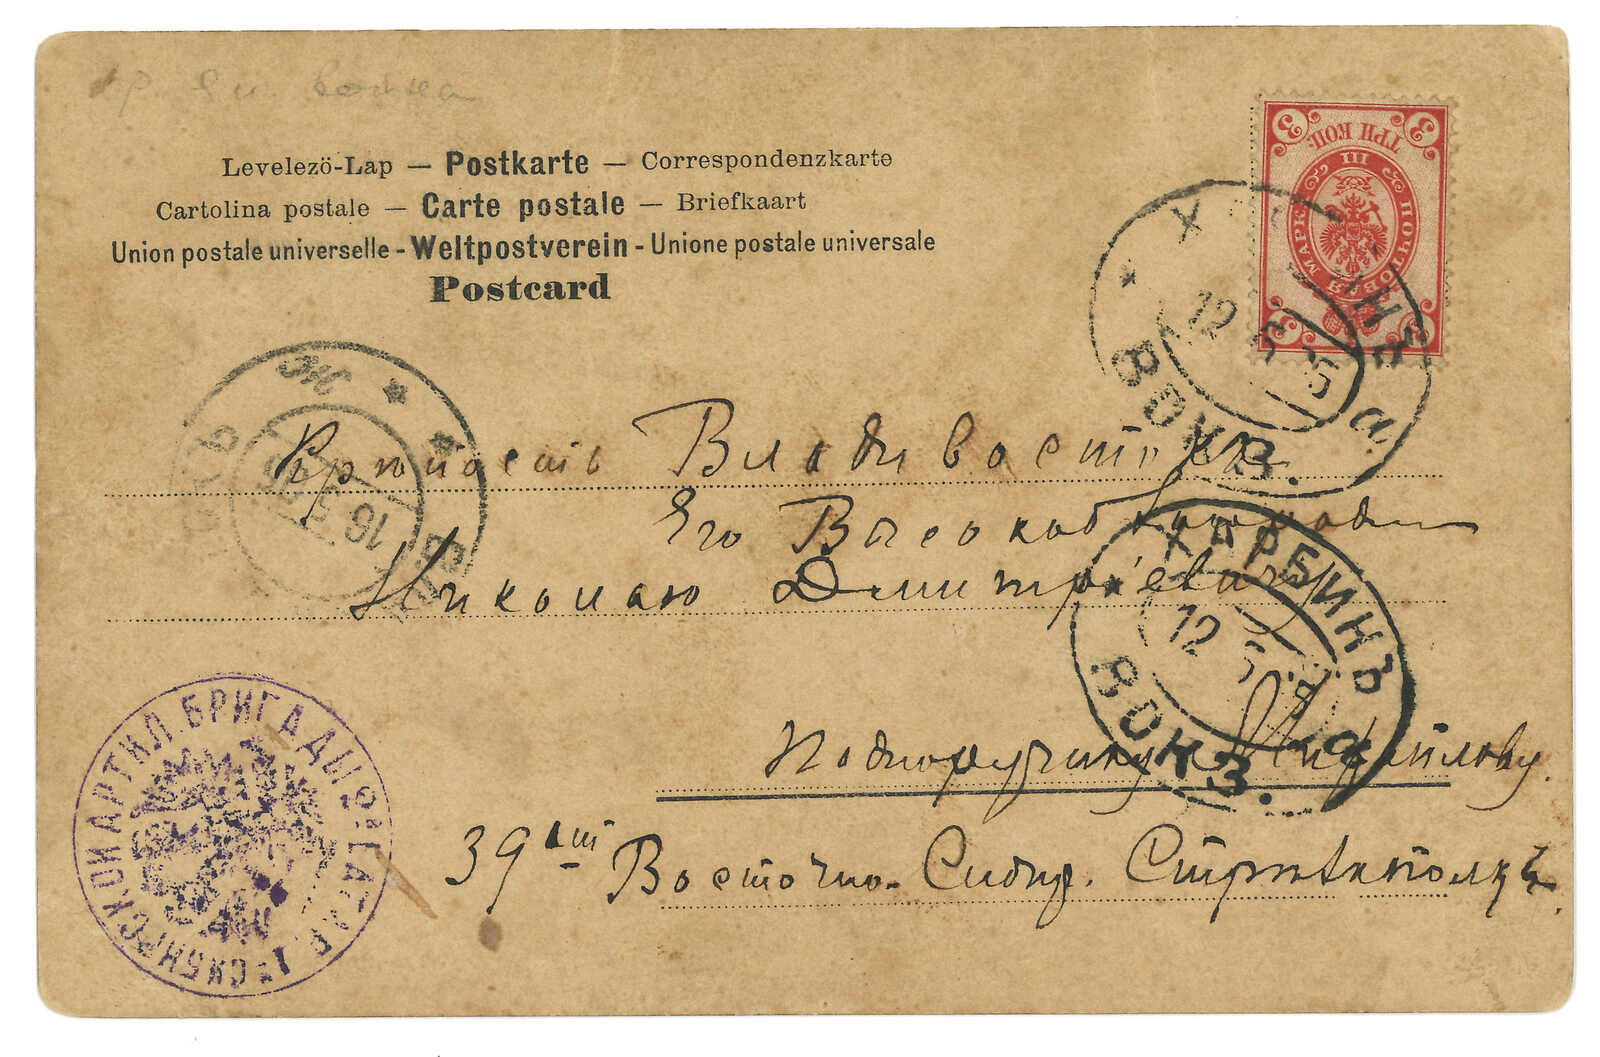 Levelezö-Lap — Postkarte — Correspondenzkarte
Cartolina postale — Carte postale — Briefkaart
Union postale universelle - Weltpostverein - Unione postale universale
Postcard
ТРИ КОП.
ПОЧТОВАЯ МАРКА
3 3 3 3
12 5 05
ВОКЗ.
Владивостокъ
Его Высокоблагородию
Николаю Дмитріевичу
ХАРБИНЪ
12 5
ВОКЗ.
Подпоручику
39 Восточно-Сибир. Стрѣлк. полкъ
СИБИРСКОЙ АРТИЛ. БРИГАДЫ